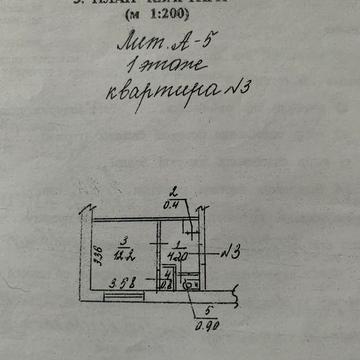 (м 1:200)
Лит. А-5
1 этаж
квартира №3
2
0.4
3
12.2
1
4.20
№3
336
4
0.8
3.58
5
0.90